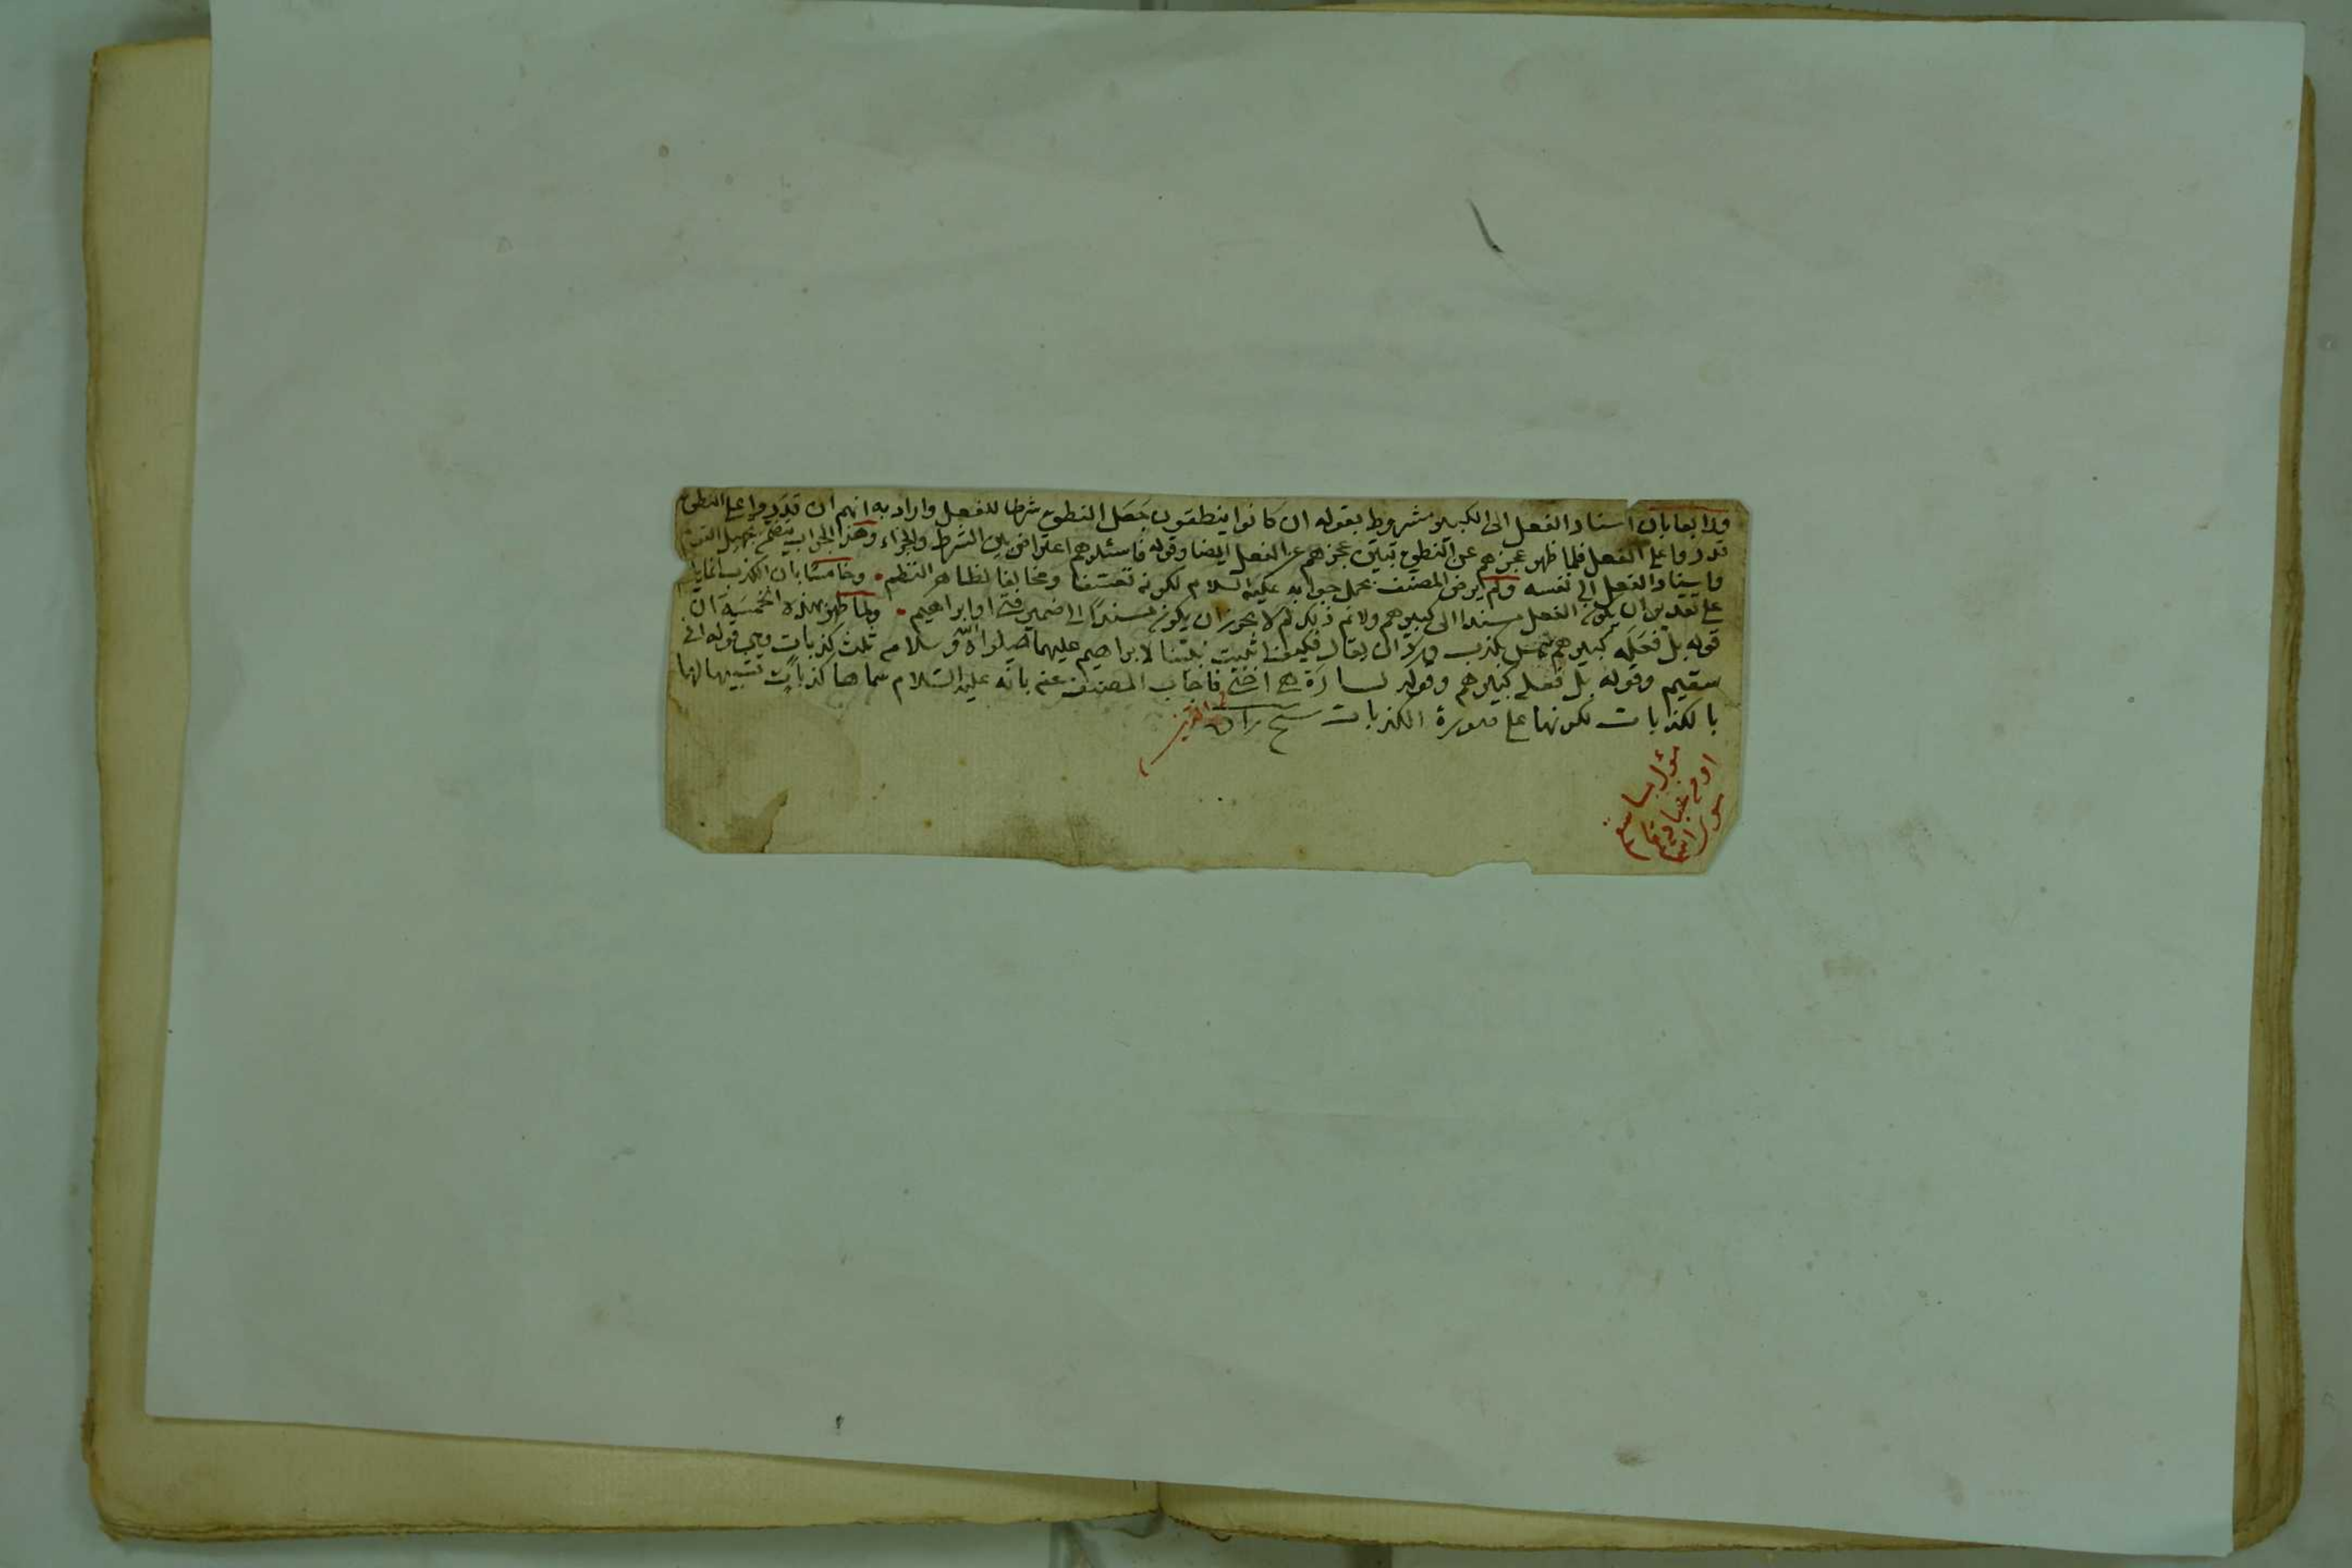 ورابعا بان اسناد الفعل الى الكبير مشروط بقوله ان كانوا ينطقون جعل النطق شرطا للفعل واراد به انهم ان قدروا على النطق
قدروا على الفعل فلما ظهر عجزهم عن النطق تبين عجزهم عن الفعل ايضا وقوله فاسئلوهم اعتراض بين الشرط والجزاء وهذا الجواب يتضمن
واسناد الفعل الى نفسه ولم يرض المصنف بحمل جوابه عليه السلام لكونه تعسفا ومخالفا لظاهر النظم وخامسا بان الكذب انما يلزم
على تقدير ان يكون الفعل مسندا الى كبيرهم ولا نم ذلك لم لا يجوز ان يكون مسندا الى ضمير فتى او ابراهيم ولما ظهر بهذه الخمسة ان
قوله بل فعله كبيرهم ليس بكذب ورد ان يقال فكيف اثبت نبينا لابراهيم عليهما صلوات الله وسلامه ثلث كذبات وهي قوله اني
سقيم وقوله بل فعله كبيرهم وقوله لسارة هي اختي فاجاب المصنف عنه بانه عليه السلام سماها كذبات تشبيها لها
بالكذبات لكونها على صورة الكذبات